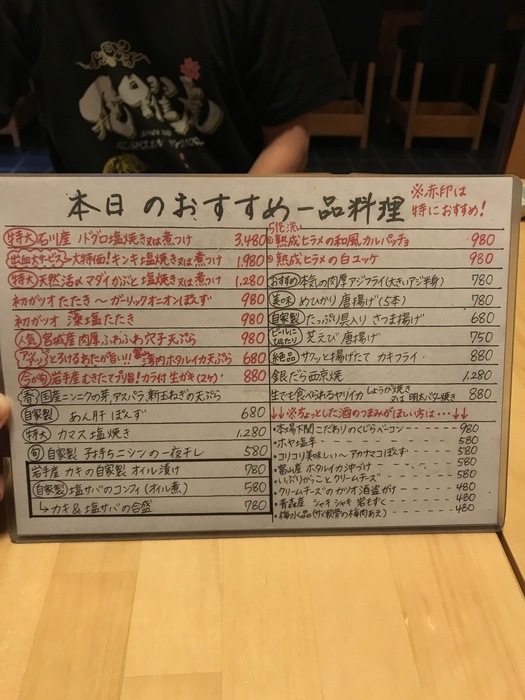 本日のおすすめ一品料理
※赤印は
特におすすめ!
特大 石川産 ノドグロ塩焼き又は煮つけ 3,480
出血大サービス 一大特価! キンキ塩焼き又は煮つけ 1,980
特大 天然活〆マダイかぶと塩焼き又は煮つけ 1,280
初がツオ たたき〜ガーリックオニオンぽんず 980
初がツオ 藻塩たたき 980
人気 宮城産 肉厚ふわふわ穴子天ぷら 980
とろけるあたが旨い! 湾内ホタルイカ天ぷら 680
今が旬 岩手産 むきたてプリ旨! カラ付 生ガキ(2ケ) 880
春 国産ニンニクの芽 アスパラ 新玉ねぎの天ぷら 580
自家製 あん肝ぽんず 680
特大 カマス塩焼き 1,280
旬 自家製 子持ちニシンの一夜干し 580
岩手産 カキの自家製オイル漬け 780
自家製 塩サバのコンフィ(オイル煮) 580
↳カキ&塩サバの合盛 780
熟成ヒラメの和風カルパッチョ 980
熟成ヒラメの白ユッケ 980
おすすめ 本気の肉厚アジフライ(大きいアジ半身) 780
美味 めひかり唐揚げ(5本) 780
自家製 たっぷり具入りさつま揚げ 680
ビールにぴったり 芝えび唐揚げ 750
絶品 サクッと揚げたて カキフライ 880
銀だら西京焼 1,280
生でも食べられるヤリイカ しょうが焼き 又は 明太バター焼き 880
↓↓※ちょっとした酒のつまみがほしい方は…↓↓
・本場下関 こだわりのくじらベーコン 980
・ホヤ塩辛 580
・コリコリ美味しい〜アカナマコぽんず 580
・富山産 ホタルイカ沖づけ 580
・いぶりがっことクリームチーズ 580
・クリームチーズのカツオ酒盗がけ 480
・青森産 シャキシャキ 岩もずく 480
・梅水晶(サメ軟骨の梅肉あえ) 480